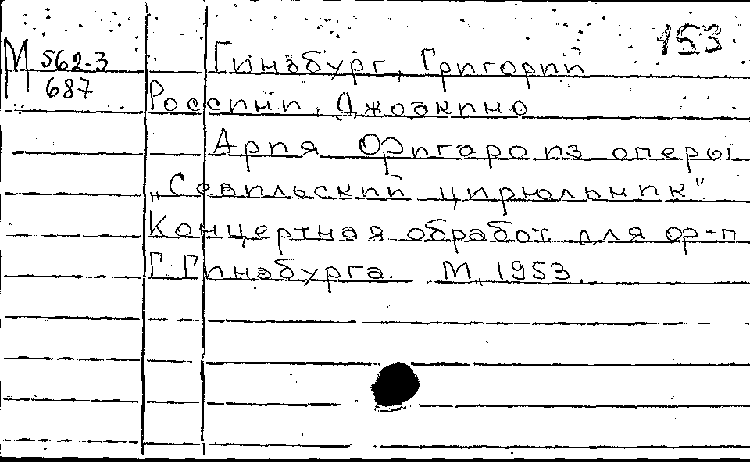 153
М 562-3
687
Гинзбург, Григорий
Россини, Джоакино
Ария Фигаро из оперы
„Севильский цирюльник"
Концертная обработ. для ф-п
Г. Гинзбурга М, 1953.